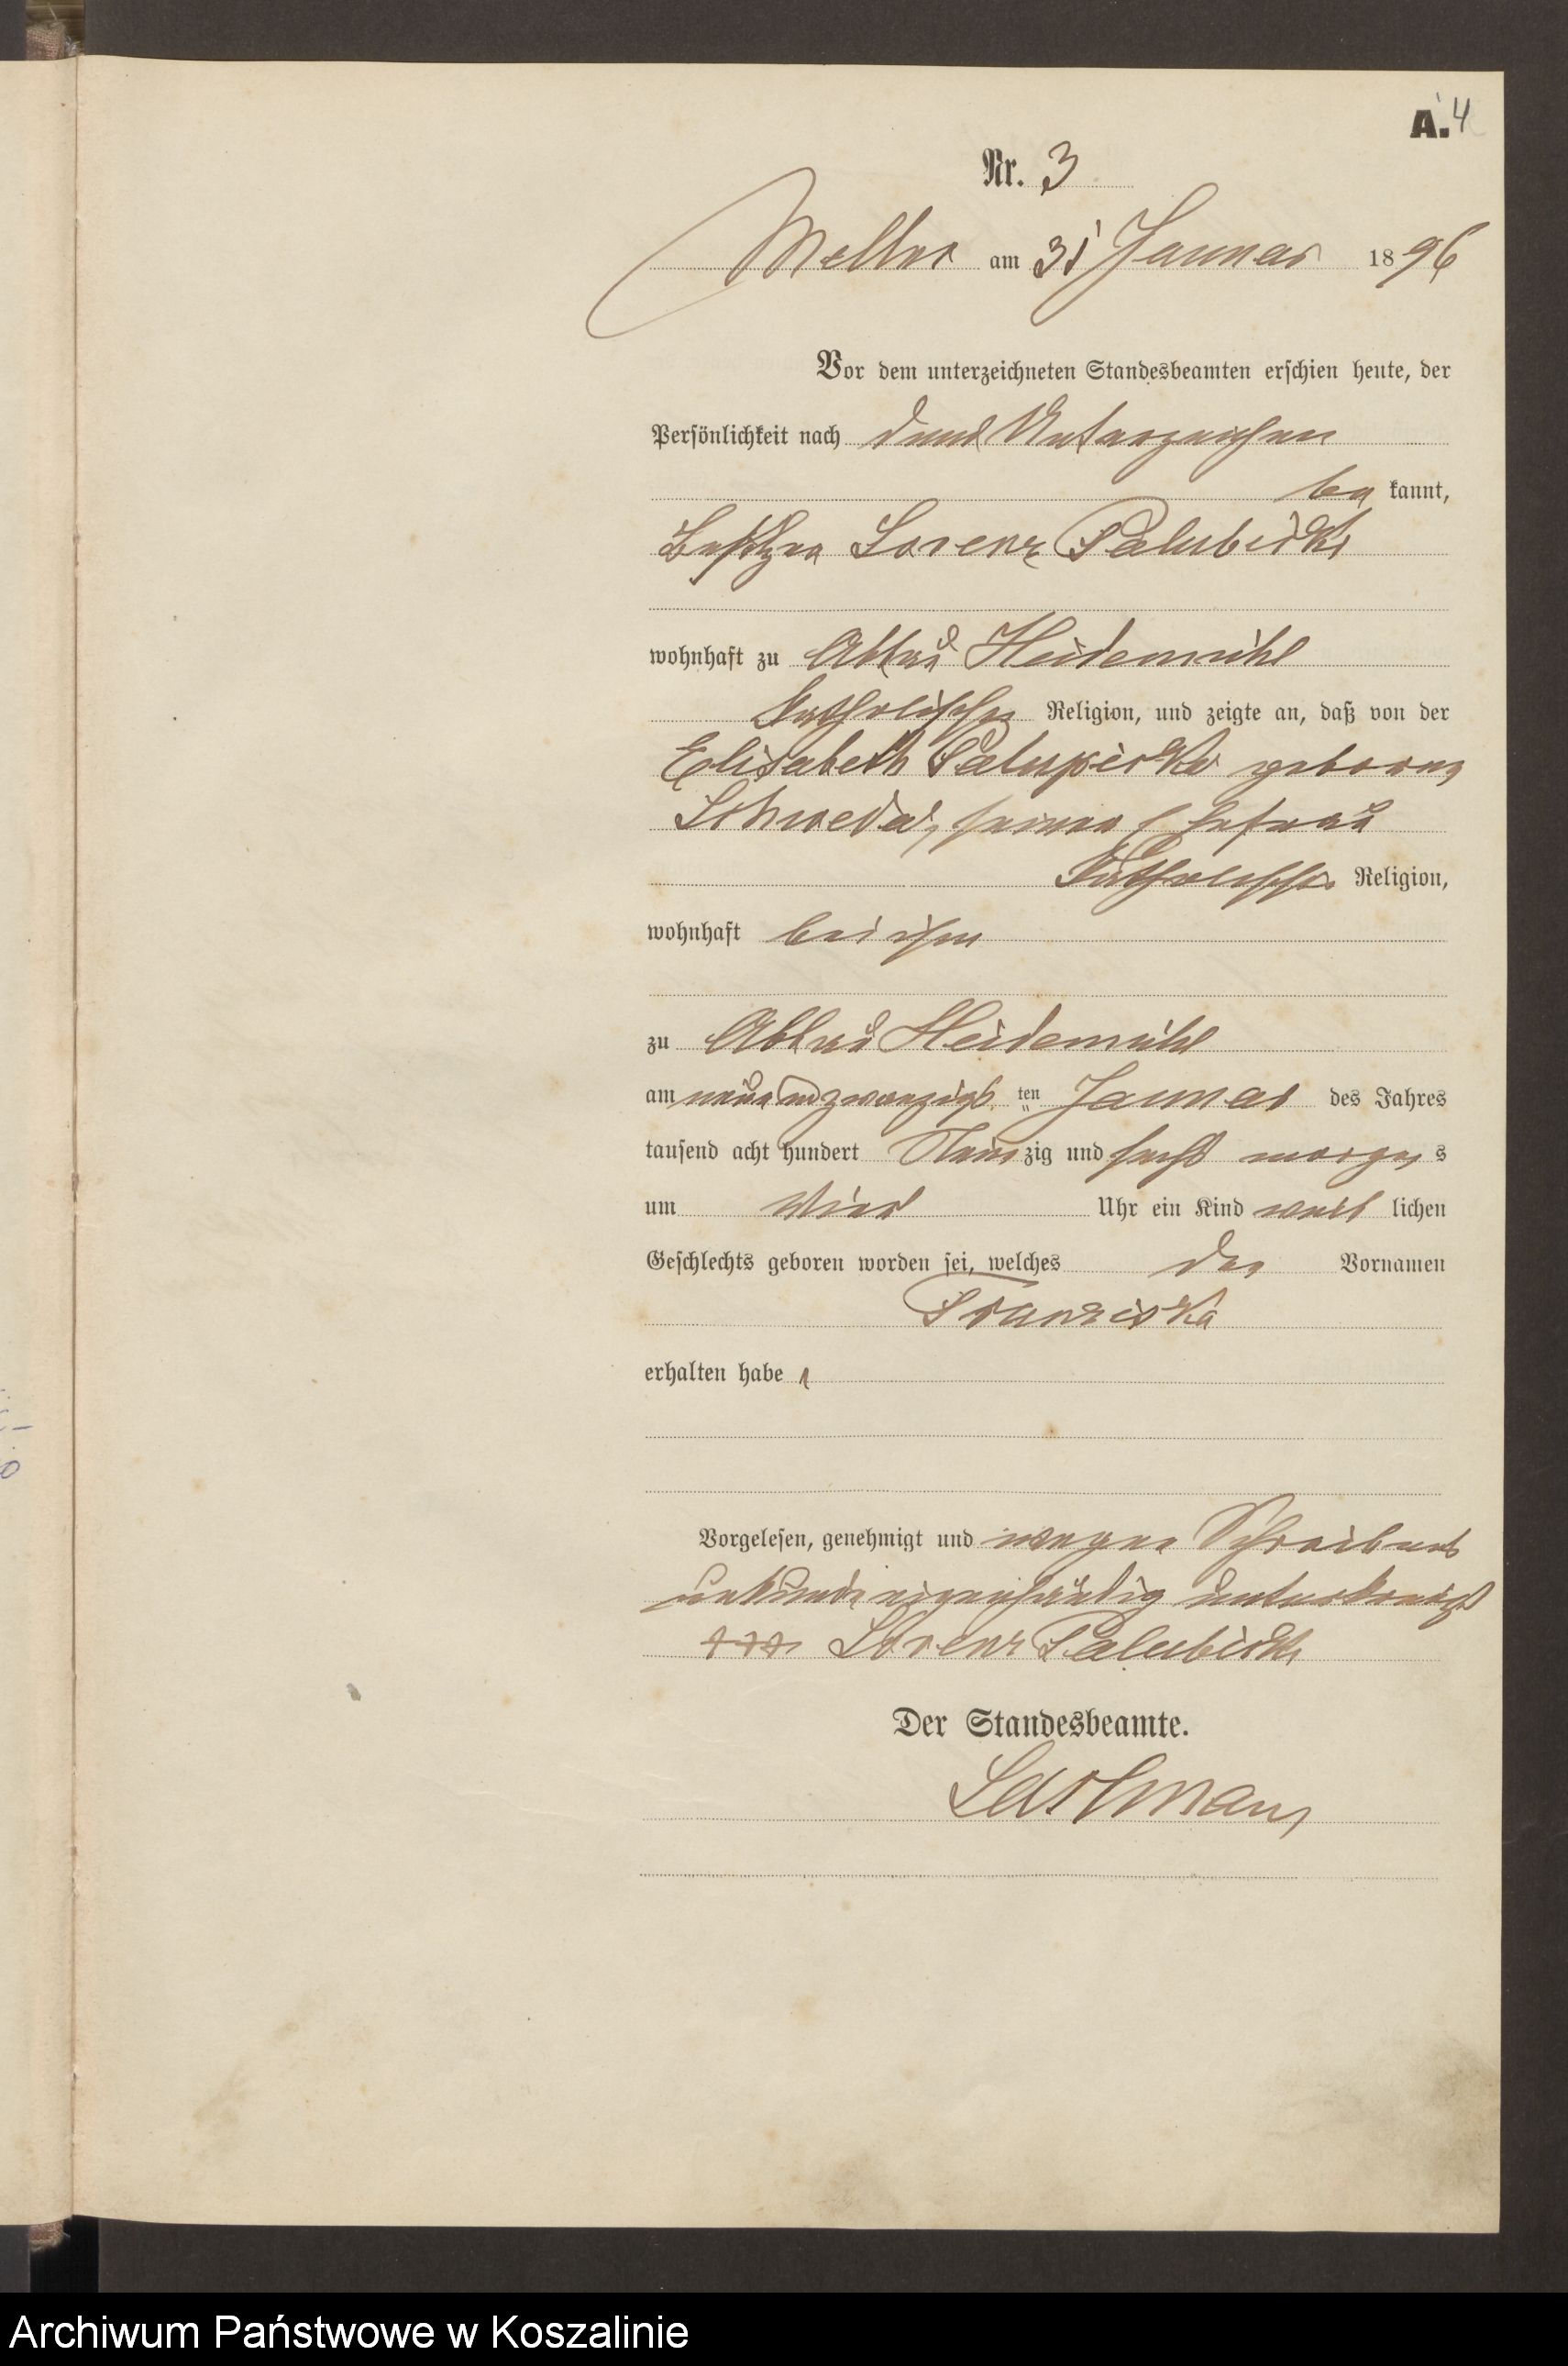 A. 4
Nr. 3
Mellno am 31 Januar 1896
Vor dem unterzeichneten Standesbeamten erschien heute, der
Persönlichkeit nach
be kannt,
Besitzer Lorenz Palubicki
wohnhaft zu Abbau Heidemühl
katholischer Religion, und zeigte an, daß von der
Elisabeth Palupicki geborene
seiner Ehefrau
katholischer Religion,
wohnhaft bei ihm
zu Abbau Heidemühl
am neunundzwanzigs ten Januar des Jahres
tausend acht hundert Neunzig und sechs morgens
um Vier Uhr ein Kind weib lichen
Geschlechts geboren worden sei, welches den Vornamen
Franziska
erhalten habe
Vorgelesen, genehmigt und wegen Schreibens
unkunde eigenhändig unterkreuzt
+++ Lorenz Palubicki
Der Standesbeamte.
Archiwum Państwowe w Koszalinie